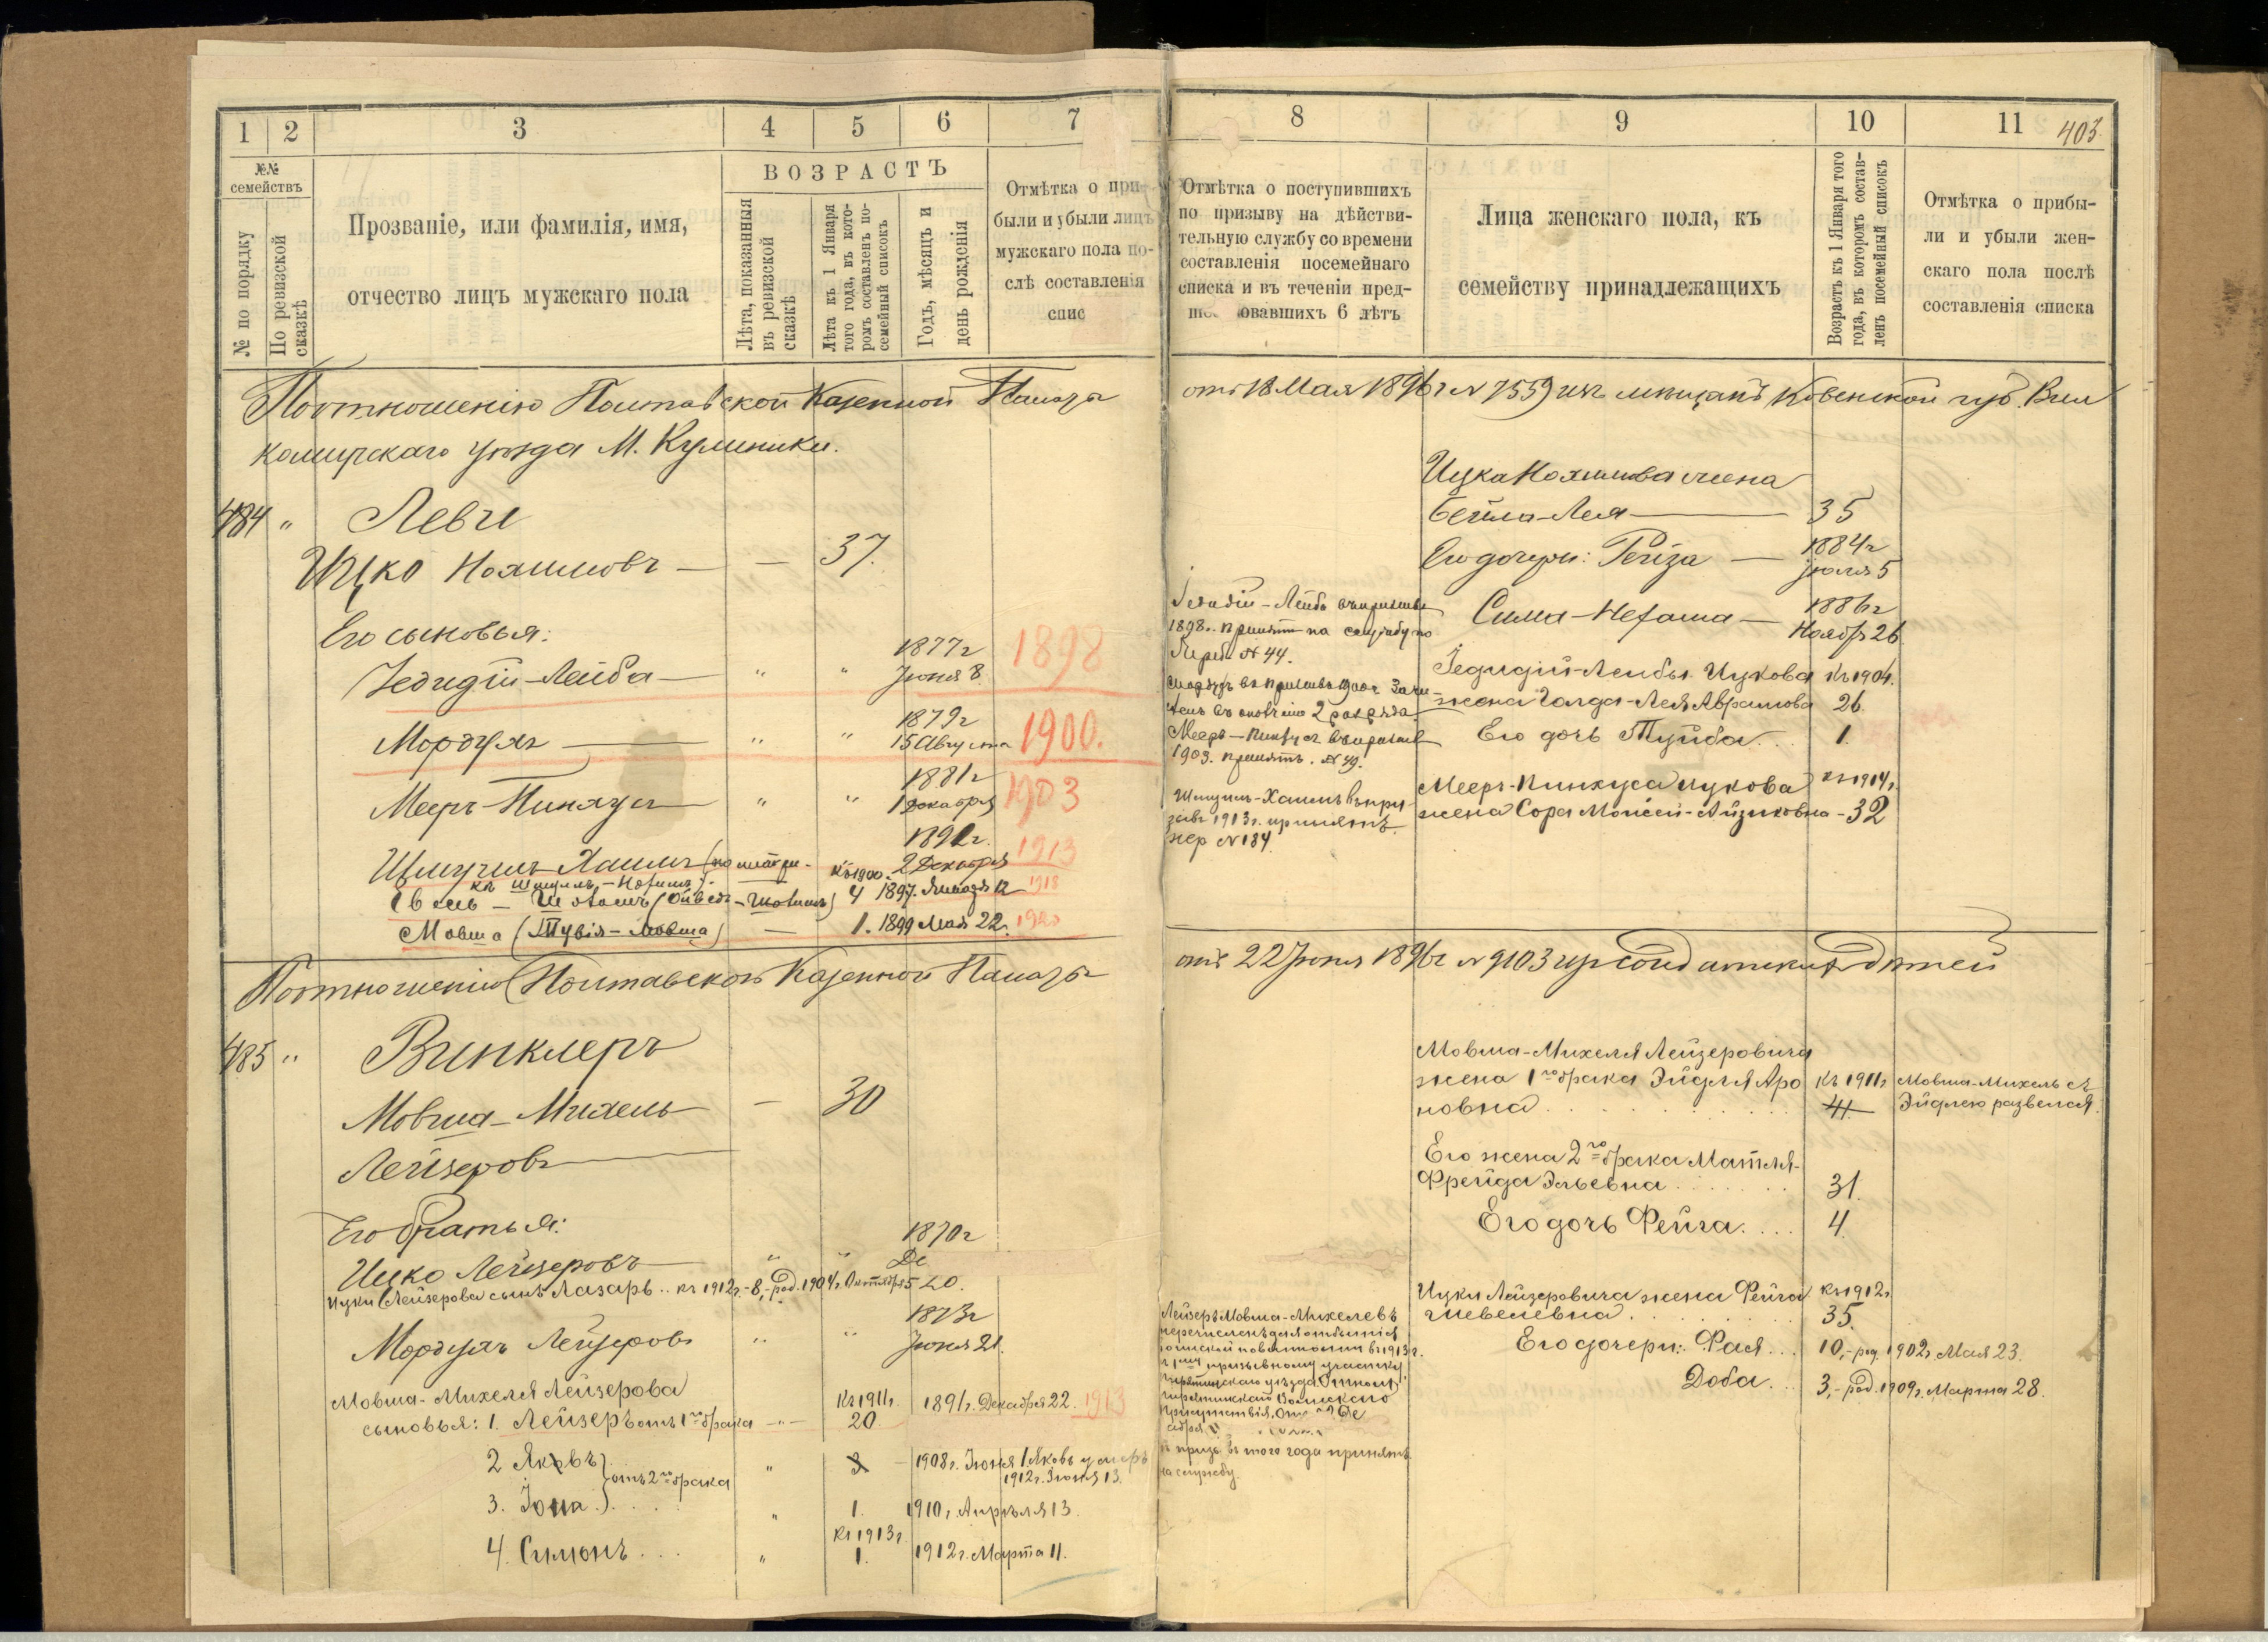 1 2 3 4 5 6 7
№№ семействъ
№ по порядку
По ревизской сказкѣ
Прозваніе, или фамилія, имя,
отчество лицъ мужскаго пола
ВОЗРАСТЪ
Лѣта, показанныя
въ ревизской
сказкѣ
Лѣта къ 1 Января
того года, въ кото-
ромъ составленъ по-
семейный списокъ
Годъ, мѣсяцъ и
день рожденія
Отмѣтка о при-
были и убыли лицъ
мужскаго пола по-
слѣ составленія
спис
По отношенію Полтавской Казенной Палаты
комирскаго уѣзда М.
484 " Леви
Ицко Нохимовъ — — 37.
Его сыновья:
1877 г
Іедидій-Лейба — " " Іюня 8. 1898
1879 г
Мордухъ — " " 15 Августа 1900.
1881 г
Мееръ-Пинхусъ " " 1 Декабря 1903
189 г.
Шмуилъ Хаимъ (по метри- Къ 1900. 2 Декабря 1913
къ Шмуилъ-
— (Овсей-Шоломъ) 4 1897. Января 12 1918
Мовша (Тувія-Мовша) — 1. 1899 Мая 22. 1920
По отношенію Полтавской Казенной Палаты
485 " Винклеръ
Мовша-Михель — 30
Лейзеровъ
Его братья:
1870 г
Ицко Лейзеровъ " " Де
Ицки Лейзерова сынъ Лазарь.. къ 1912 г.-8,-род. 1904 г. Октября 5 20.
1873 г
Мордухъ Лейзеровъ " " Іюня 21.
Мовша-Михеля Лейзерова Къ 1911 г.
сыновья: 1. Лейзеръ отъ 1го брака -"- 20 1891 г. Декабря 22. 1913
2 Яковъ } " 3 1908 г. Іюня 1 Яковъ умеръ
отъ 2го брака 1912 г. Іюня 13.
3. Іона. } " 1. 1910 г. Апрѣля 13.
Къ 1913 г.
4. Симонъ... " 1. 1912 г. Марта 11.
8 9 10 11
403.
Отмѣтка о поступившихъ
по призыву на дѣйстви-
тельную службу со времени
составленія посемейнаго
списка и въ теченіи пред-
овавшихъ 6 лѣтъ
Лица женскаго пола, къ
семейству принадлежащихъ
Возрастъ къ 1 Января того
года, въ которомъ состав-
ленъ посемейный списокъ
Отмѣтка о прибы-
ли и убыли жен-
скаго пола послѣ
составленія списка
отъ 18 Мая 1896 г № 7559 изъ мѣщанъ Ковенской губ. Вил
Ицка Нохимова жена
Бейла-Лея — 35
Его дочери: Рейза — 1884 г
Іюля 5
Сима-Нехама — 1886 г
Ноября 26
Іедидій-Лейба въ призывѣ
1898 г. принятъ на службу по
жереб. № 44.
Мордухъ въ призывѣ 1900 г. Зачи-
сленъ въ ополченіе 2 разряда.
Мееръ-Пинхусъ въ призывѣ
1903. принятъ. № 49.
Шмуилъ-Хаимъ въ при-
зывъ 1913 г. принятъ
жер № 184
Іедидій-Лейбы Ицкова Къ 1904.
жена Голда-Лея Абрамова 26.
Его дочь Туйба.. 1.
Мееръ-Пинхуса Ицкова къ 1914 г.
жена Сора Моисей-Айзиковна-32
отъ 22 Іюня 1896 г № 9103 изъ солдатскихъ дѣтей
Мовша-Михеля Лейзеровича
жена 1го брака Эйдля Аро къ 1911 г. Мовша-Михель съ
новна..... 41 Эйдлею развелся.
Его жена 2го брака Матля-
Фрейда Эльевна..... 31.
Его дочь Фейга.... 4.
Ицки Лейзеровича жена Фейга къ 1912 г.
Шевелевна...... 35.
Его дочери: Фая... 10,-род. 1902 г. Мая 23.
Доба... 3,-род. 1909 г. Марта 28.
Лейзеръ Мовша-Михелевъ
перечисленъ для отбытія
воинской повинности въ 1913 г.
призывному участку
уѣзда. Отнош.
Воинскаго
Присутствія, отъ
въ призывъ того года принятъ
на службу.